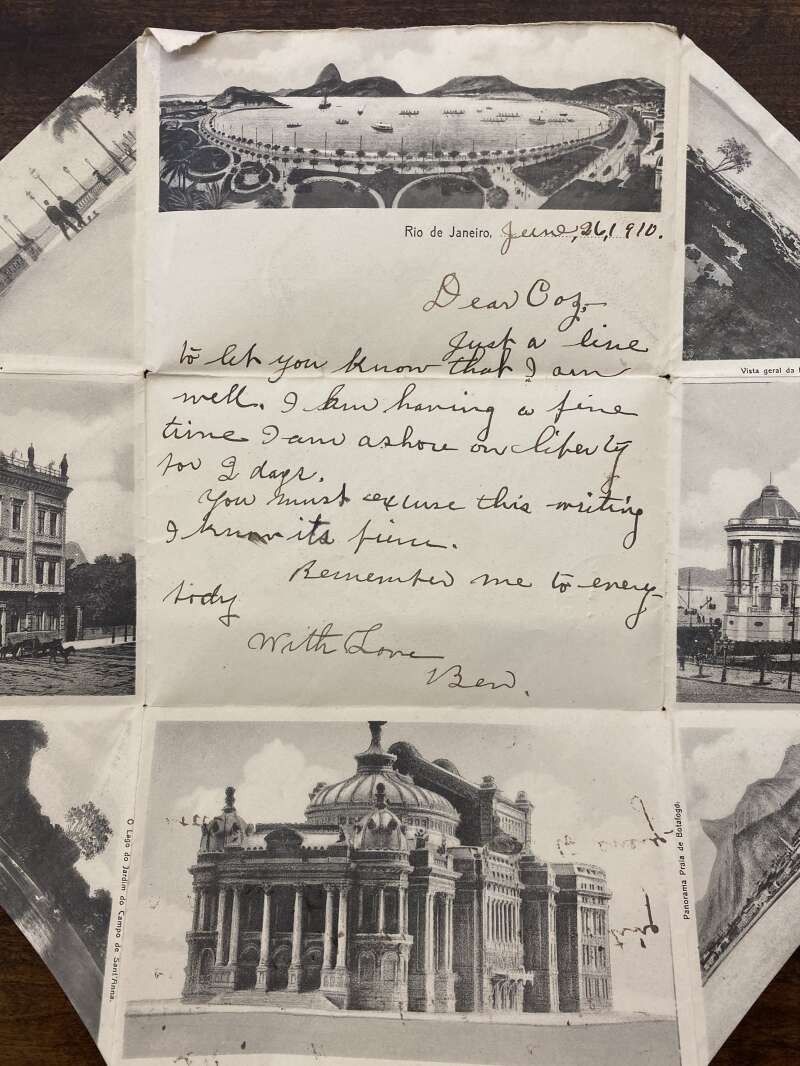 Rio de Janeiro, June, 26, 1910.
Dear Coz,
Just a line
to let you know that I am
well. I am having a fine
time I am ashore on liberty
for 2 days.
You must excuse this writing
I know its fine.
Remember me to every
body
With Love
Ben.
Vista geral da
O Lago do Jardim do Campo de Sant'Anna.
Panorama Praia de Botafogo.